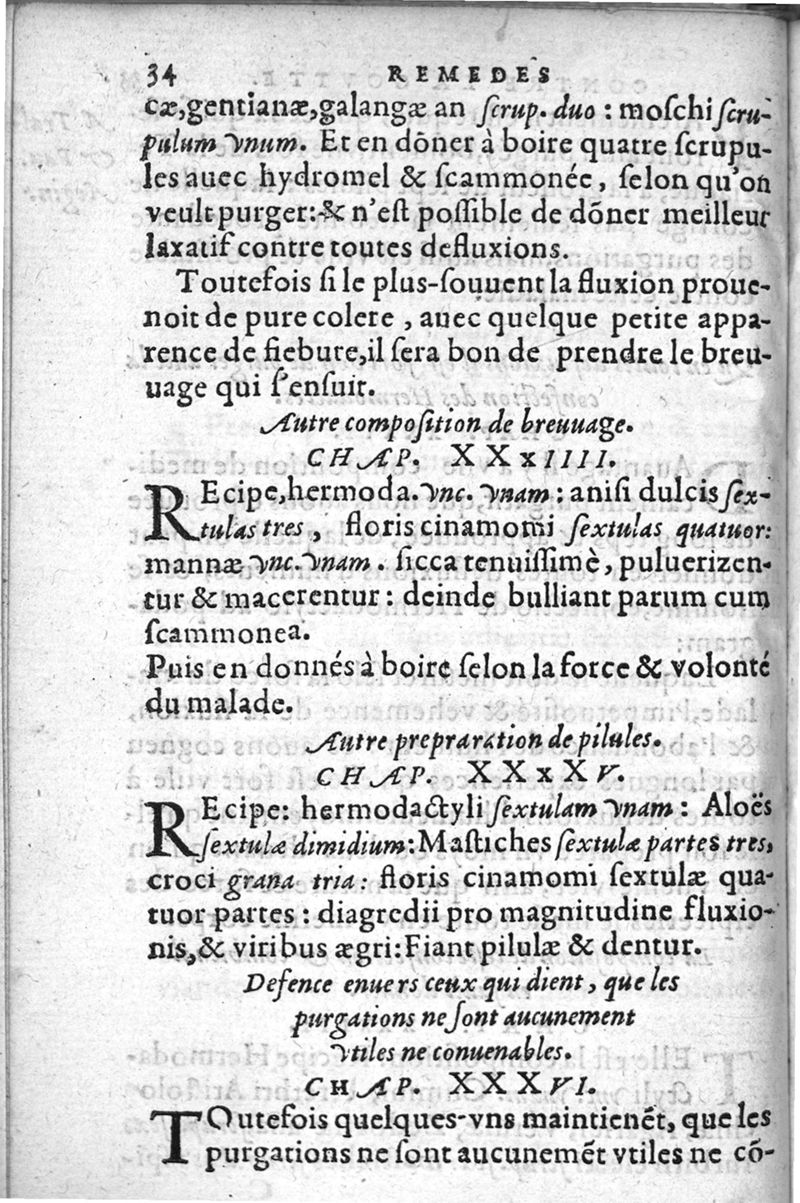 34 REMEDES
cæ,gentianæ,galangæ an ſcrup. duo : moſchi ſcru-
pulum vnum. Et en dõner à boire quatre ſcrupu-
les auec hydromel & ſcammonée, ſelon qu'on
veult purger: & n'eſt poſſible de dõner meilleur
laxatif contre toutes defluxions.
Toutefois ſi le plus-ſouuent la fluxion proue-
noit de pure colere , auec quelque petite appa-
rence de fiebure,il ſera bon de prendre le breu-
uage qui ſ'enſuit.
Autre compoſition de breuuage.
CHAP. XXXIIII.
REcipe,hermoda. vnc. vnam : aniſi dulcis ſex-
tulas tres , floris cinamomi ſextulas quatuor:
mannæ vnc. vnam . ſicca tenuiſſimè, puluerizen-
tur & macerentur : deinde bulliant parum cum
ſcammonea.
Puis en donnés à boire ſelon la force & volonté
du malade.
Autre prepraration de pilules.
CHAP. XXXXV.
REcipe: hermodactyli ſextulam vnam : Aloës
ſextulæ dimidium: Maſtiches ſextulæ partes tres,
croci grana tria : floris cinamomi ſextulæ qua-
tuor partes : diagredii pro magnitudine fluxio-
nis,& viribus ægri: Fiant pilulæ & dentur.
Defence enuers ceux qui dient , que les
purgations ne ſont aucunement
vtiles ne conuenables.
CHAP. XXXVI.
TOutefois quelques-vns maintienẽt, que les
purgations ne ſont aucunemẽt vtiles ne cõ-